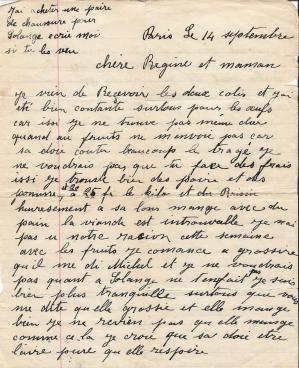 J'ai acheter une paire
de chaussure pour
Solange ecris moi
si tu les veu
Paris Le 14 septembre
chère Regine et maman
je vien de Recevoir les deux colis et j'ai
été bien contante surtous pour les œufs
car issi je ne trouve pas meme cher
quand au fruits ne m'envoie pas car
sa doit couter beaucoup le tragé je
ne voudrais pas que tu face des frais
issi je trouve bien des poire et des
pomme 20 25 fr le kilo et du Raisin
huresement a sa lons mange avec du
pain la viande est introuvable je nai
pas u notre Rasion cette semaine
avec les fruits je comance a grossire
qu'il me di Michel et je ne voudrais
pas quant a Solange ne t'enfait pas je suis
bien plus tranquille surtous que vous
me dite quelle grossie et elle mange
bien je ne revien pas que elle mange
comme ce la je croie que sa doit etre
l'aire pure que elle respire